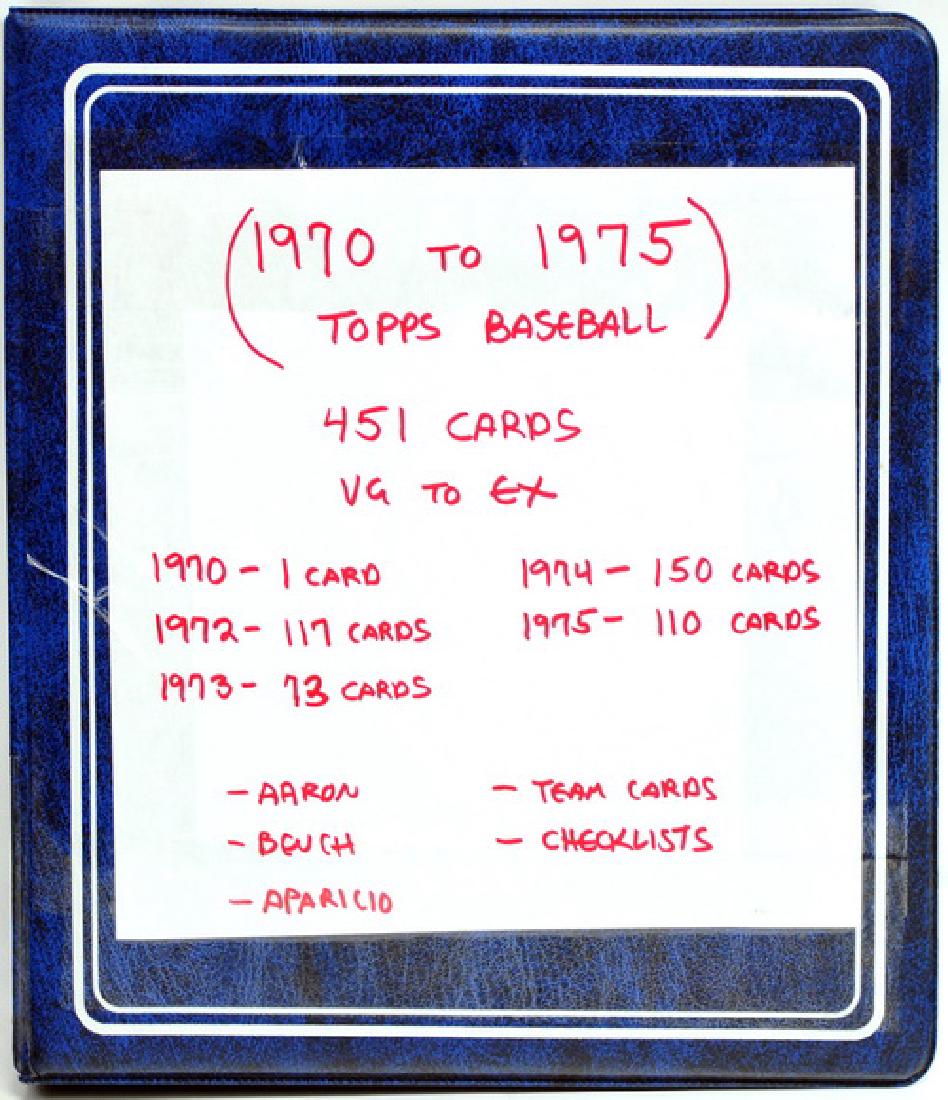 (1970 TO 1975)
TOPPS BASEBALL
451 CARDS
VG TO EX
1970 - 1 CARD
1972 - 117 CARDS
1973 - 73 CARDS
1974 - 150 CARDS
1975 - 110 CARDS
- AARON
- BENCH
- APARICIO
- TEAM CARDS
- CHECKLISTS